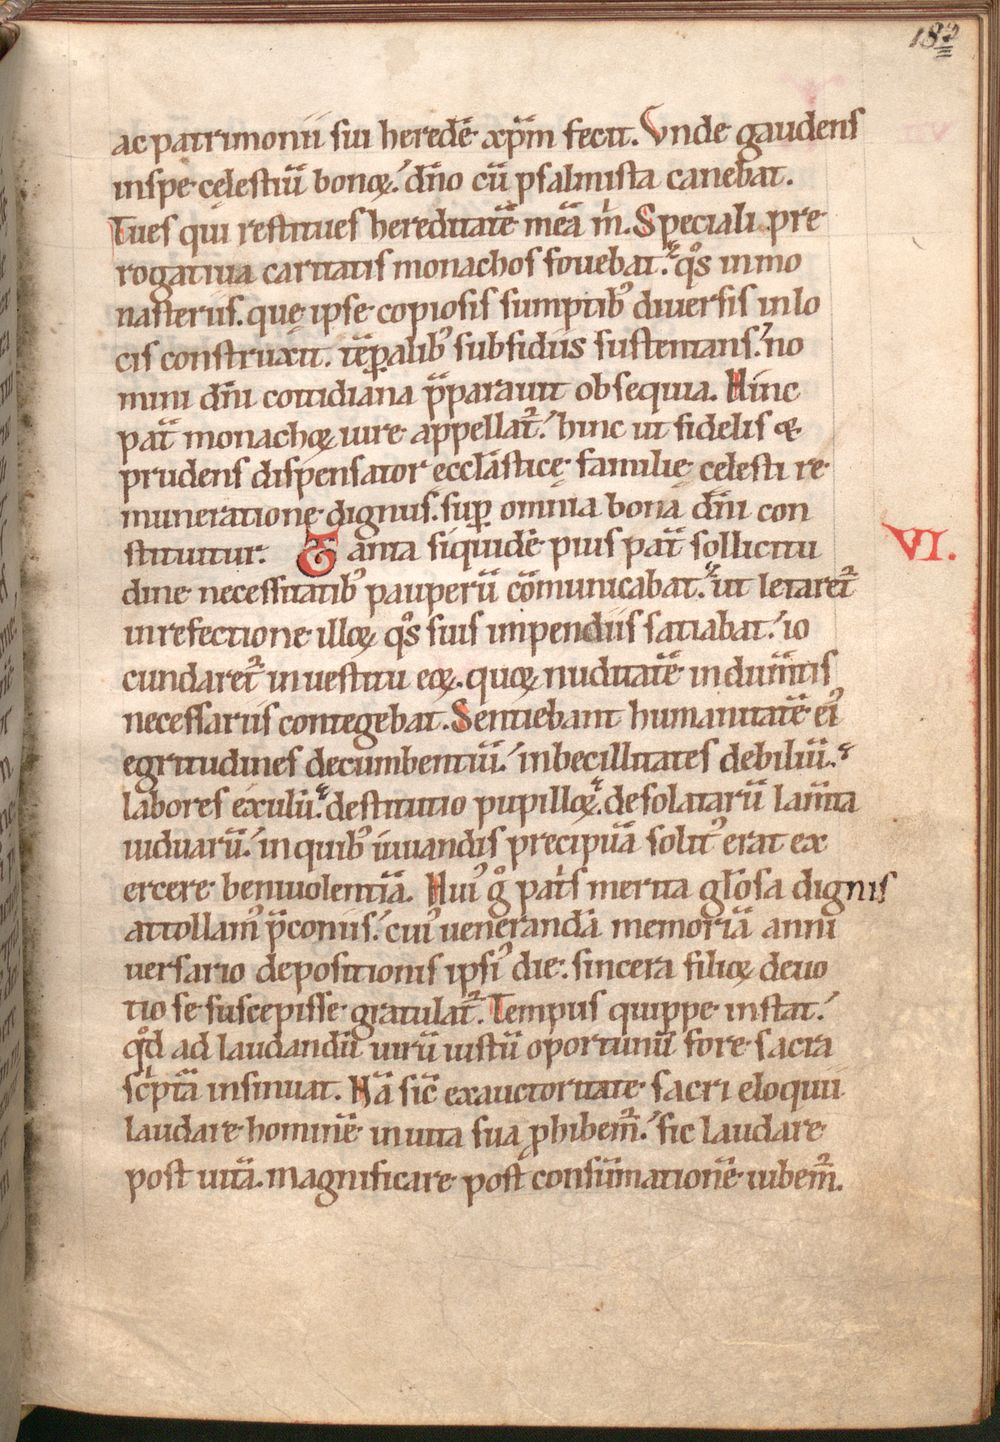 182
ac patrimonii sui heredē xp̄m fecit. Vnde gaudens
in spe cęlestiū bonoꝝ. dn̄o cū psalmista canebat.
Tu es qui restitues hereditatē meā m̓. Speciali pre
rogatiua caritatis monachos fouebat. qͦs in mo
nasteriis. quę ipse copiosis sumptibꝰ diuersis in lo
cis construxit. tēꝑalibꝰ subsidiis sustentans. no
mini dn̄i cottidiana p̄parauit obsequia. Hinc
pat̄ monachoꝝ iure appellat᷑. hinc ut fidelis &
prudens dispensator ecclāsticę familię cęlesti re
muneratione dignus. suꝑ omnia bona dn̄i con
stituitur. Tanta siquidē pius pat̄ sollicitu
dine necessitatibꝰ pauperū cōmunicabat. ut letaret᷑
in refectione illoꝝ qͦs suis impendiis satiabat. io
cundaret᷑ in uestitu eoꝝ. quoꝝ nuditatē indum̄tis
necessariis contegebat. Sentiebant humanitatē eiꝰ
egritudines decumbentiū. inbecillitates debiliū.
labores exulū. destitutio pupilloꝝ. desolatarū lam̄ta
uiduarū. in quibꝰ iuuandis precipuā solitꝰ erat ex
ercere beniuolentiā. Huiꝰ gͦ pat̓s merita gl̄osa dignis
attollamꝰ p̄coniis. cuiꝰ uenerandā memoriā anni
uersario depositionis ipsiꝰ die. sincera filioꝝ deuo
tio se suscepisse gratulat᷑. Tempus quippe instat.
qͦd ad laudandū uirū iustū oportunū fore sacra
sc̓pta insinuat. Nā sic̄ ex auctoritate sacri eloquii
laudare hominē in uita sua ꝓhibem᷑. sic laudare
post uitā. magnificare post consūmationē iubem᷑.
VI.